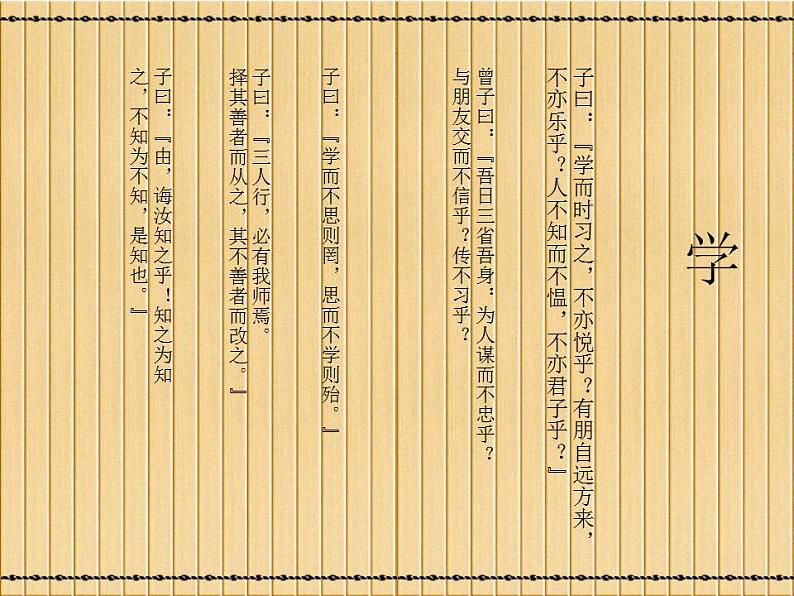 学
子曰：『学而时习之，不亦悦乎？有朋自远方来，
不亦乐乎？人不知而不愠，不亦君子乎？』
曾子曰：『吾日三省吾身：为人谋而不忠乎？
与朋友交而不信乎？传不习乎？
子曰：『学而不思则罔，思而不学则殆。』
子曰：『三人行，必有我师焉。
择其善者而从之，其不善者而改之。』
子曰：『由，诲汝知之乎！知之为知
之，不知为不知，是知也。』